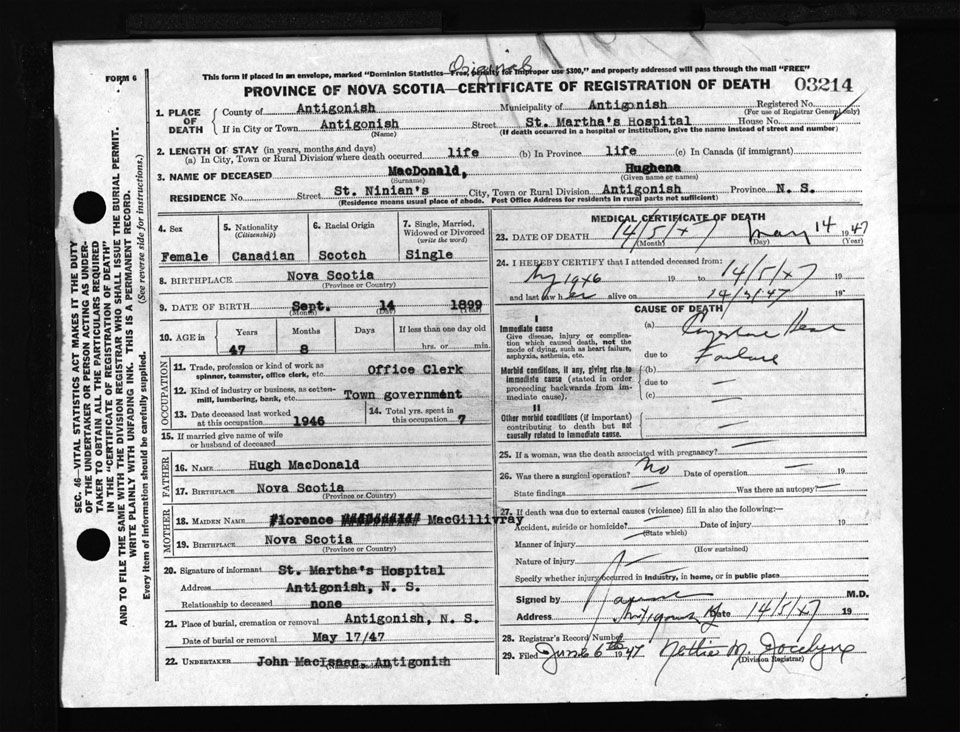 Original
FORM 6
This form if placed in an envelope, marked "Dominion Statistics—Free, penalty for improper use $300," and properly addressed will pass through the mail "FREE"
PROVINCE OF NOVA SCOTIA—CERTIFICATE OF REGISTRATION OF DEATH 03214
SEC. 46—VITAL STATISTICS ACT MAKES IT THE DUTY
OF THE UNDERTAKER OR PERSON ACTING AS UNDER-
TAKER TO OBTAIN ALL THE PARTICULARS REQUIRED
IN THE "CERTIFICATE OF REGISTRATION OF DEATH"
AND TO FILE THE SAME WITH THE DIVISION REGISTRAR WHO SHALL ISSUE THE BURIAL PERMIT.
WRITE PLAINLY WITH UNFADING INK. THIS IS A PERMANENT RECORD.
Every item of information should be carefully supplied. (See reverse side for instructions.)
1. PLACE OF DEATH
County of Antigonish Municipality of Antigonish Registered No.
(For use of Registrar General only)
If in City or Town Antigonish Street St. Martha's Hospital House No.
(Name) (If death occurred in a hospital or institution, give the name instead of street and number)
2. LENGTH OF STAY (in years, months and days)
(a) In City, Town or Rural Division where death occurred life (b) In Province life (c) In Canada (if immigrant)
3. NAME OF DECEASED MacDonald, Hughena
(Surname) (Given name or names)
RESIDENCE No. Street St. Ninian's City, Town or Rural Division Antigonish Province N. S.
(Residence means usual place of abode. Post Office Address for residents in rural parts not sufficient)
4. Sex 5. Nationality (Citizenship) 6. Racial Origin 7. Single, Married, Widowed or Divorced (write the word)
Female Canadian Scotch Single
8. BIRTHPLACE Nova Scotia
(Province or Country)
9. DATE OF BIRTH Sept. 14 1899
(Month) (Day) (Year)
10. AGE in Years Months Days If less than one day old
47 8 hrs. or min.
OCCUPATION
11. Trade, profession or kind of work as spinner, teamster, office clerk, etc. Office Clerk
12. Kind of industry or business, as cotton-mill, lumbering, bank, etc. Town government
13. Date deceased last worked at this occupation 1946 14. Total yrs. spent in this occupation 7
15. If married give name of wife or husband of deceased
FATHER
16. NAME Hugh MacDonald
17. BIRTHPLACE Nova Scotia
(Province or Country)
MOTHER
18. MAIDEN NAME Florence MacGillivray
19. BIRTHPLACE Nova Scotia
(Province or Country)
20. Signature of informant St. Martha's Hospital
Address Antigonish, N. S.
Relationship to deceased none
21. Place of burial, cremation or removal Antigonish, N. S.
Date of burial or removal May 17/47
22. UNDERTAKER John MacIsaac, Antigonish
MEDICAL CERTIFICATE OF DEATH
23. DATE OF DEATH 14/5/47 May 14 1947
(Month) (Day) (Year)
24. I HEREBY CERTIFY that I attended deceased from:
1946 19 to 14/5/47 19
and last saw her alive on 14/5/47 19
CAUSE OF DEATH
I
Immediate cause
Give disease, injury or complication which caused death, not the mode of dying, such as heart failure, asphyxia, asthenia, etc.
(a) Congestive Heart
due to Failure
Morbid conditions, if any, giving rise to immediate cause (stated in order proceeding backwards from immediate cause).
(b) —
due to —
(c) —
II
Other morbid conditions (if important) contributing to death but not causally related to immediate cause.
25. If a woman, was the death associated with pregnancy? —
26. Was there a surgical operation? No Date of operation — 19
State findings — Was there an autopsy? —
27. If death was due to external causes (violence) fill in also the following:—
Accident, suicide or homicide? — Date of injury 19
(State which)
Manner of injury —
(How sustained)
Nature of injury
Specify whether injury occurred in industry, in home, or in public place
Signed by M.D.
Address Antigonish Date 14/5/47 19
28. Registrar's Record Number
29. Filed June 6th 1947 Nettie M. Jocelyne
(Division Registrar)